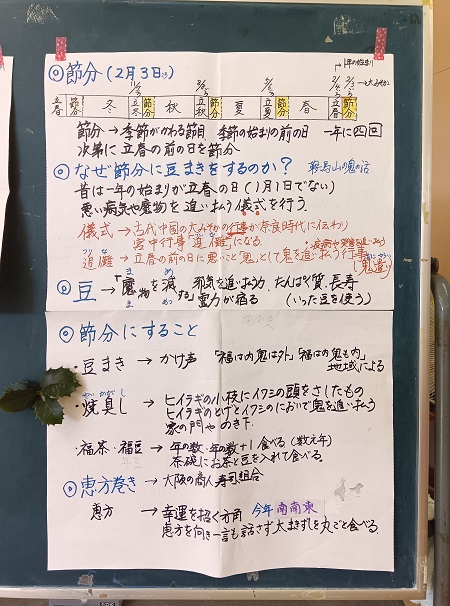 ◎節分(2月3日)
年の始まり
大みそか
立春 節分 冬 立冬 節分 秋 立秋 節分 夏 立夏 節分 春 立春 節分
節分 → 季節がかわる節目 季節の始まりの前の日 一年に四回
次第に立春の前の日を節分
◎なぜ節分に豆まきをするのか? 鞍馬山の鬼の話
昔は一年の始まりが立春の日(1月1日でない)
悪い病気や魔物を追い払う儀式を行う
儀式 → 古代中国の大みそかの行事が奈良時代に伝わり
宮中行事"追儺"になる
追儺 → 立春の前の日に悪いこと"鬼"として鬼を追い払う行事(鬼遣)
◎豆 → 「魔物を滅する」 邪気を追い払う力 たんぱく質、長寿
霊力が宿る (いった豆を使う)
◎節分にすること
・豆まき → かけ声 「福は内鬼は外」「福は内鬼も内」
地域による
・焼臭し → ヒイラギの小枝にイワシの頭をさしたもの
ヒイラギのとげとイワシのにおいで鬼を追い払う
家の門やのき下
・福茶・福豆 → 年の数・年の数+1 食べる(数え年)
茶碗にお茶と豆を入れて食べる
◎恵方巻き → 大阪の商人 寿司組合
恵方 → 幸運を招く方角 今年 南南東
恵方を向き一言も話さず太まきずしを丸ごと食べる